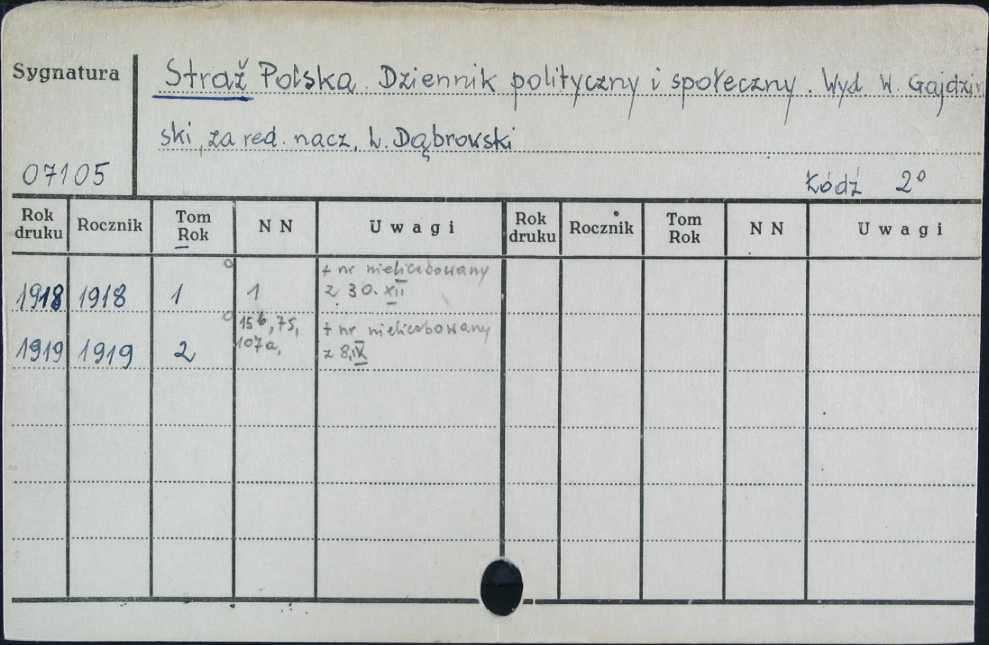 Sygnatura
07105
Straż Polska. Dziennik polityczny i społeczny. Wyd. W. Gajdziń
ski, za red. nacz. L. Dąbrowski
Łódź 2°
Rok druku Rocznik Tom Rok N N Uwagi Rok druku Rocznik Tom Rok N N Uwagi
1918 1918 1 1 + nr nieliczbowany z 30.XII
1919 1919 2 15b, 75, 107a, + nr nieliczbowany z 8.IX